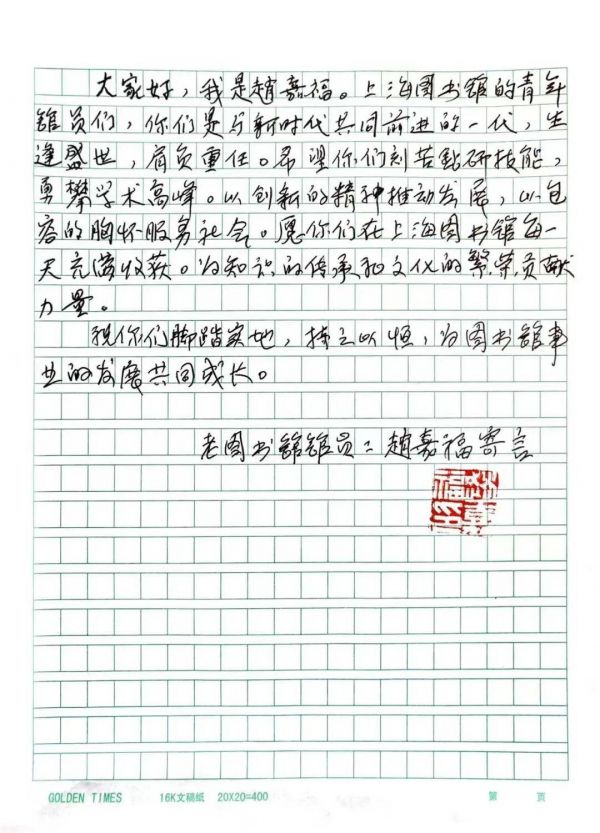 大家好，我是趙嘉福。上海图书館的青年
館员们，你们是与新时代共同前进的一代，生
逢盛世，肩负重任。希望你们刻苦鑽研技能，
勇攀学术高峰。以创新的精神推动发展，以包
容的胸怀服务社会。愿你们在上海图书館每一
天充满收获。为知识的传承和文化的繁荣贡献
力量。
祝你们脚踏实地，持之以恒，为图书館事
业的发展共同成长。
老图书館館员：趙嘉福寄言
GOLDEN TIMES 16K文稿纸 20X20=400 第 页